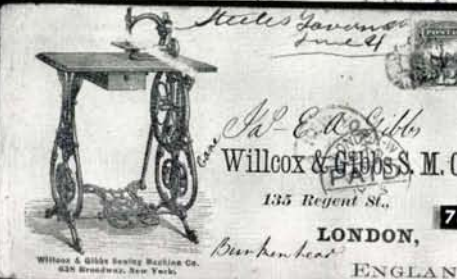 Steeles Tavern
June 4
POSTAGE
Jas E A Gibbs
Care
Willcox & Gibbs S. M. C
135 Regent St.,
7
LONDON,
ENGLAN
Willcox & Gibbs Sewing Machine Co.
658 Broadway, New York.